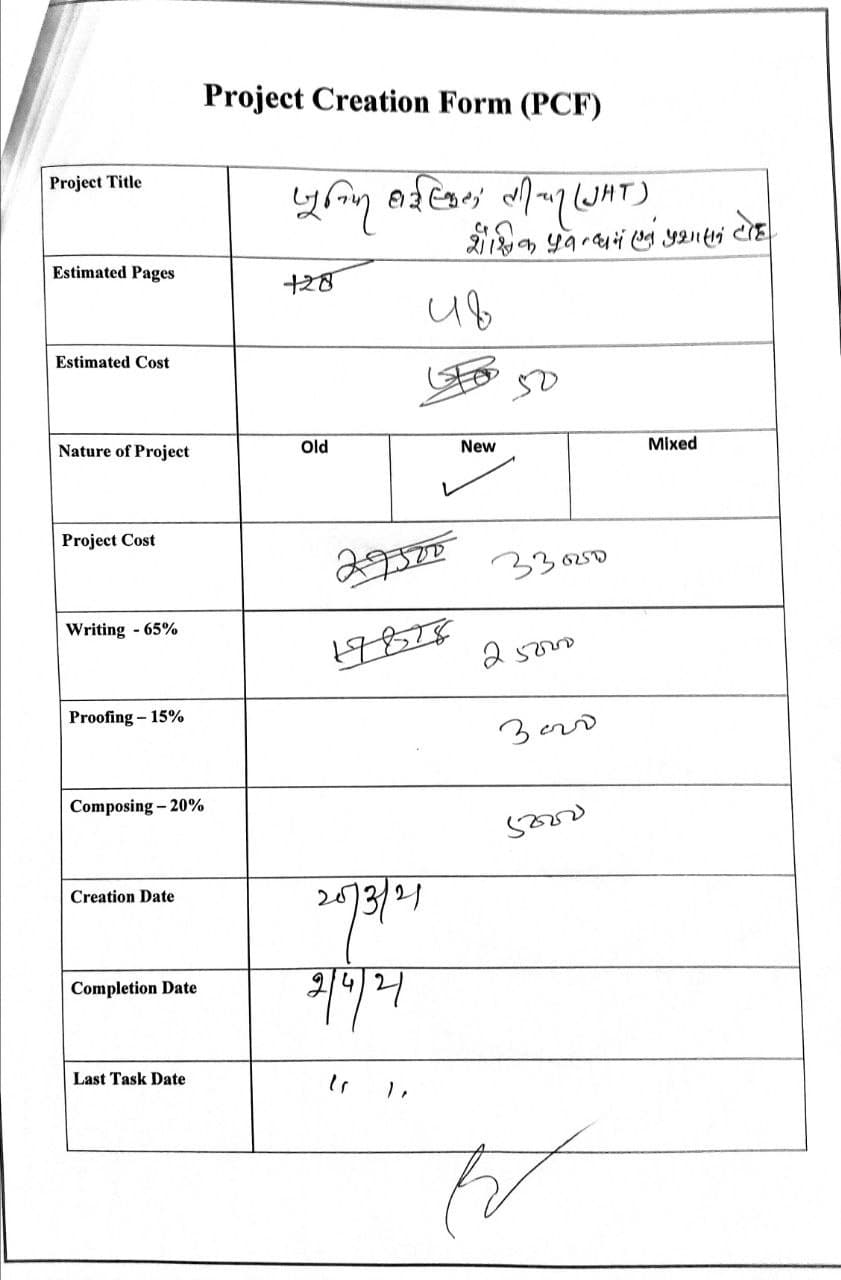 Project Creation Form (PCF)
Project Title
(JHT)
शैक्षिक प्रबन्धन एवं प्रशासन
Estimated Pages
120
Estimated Cost
50
Nature of Project Old New Mixed
✓
Project Cost
27500 33000
Writing - 65%
25000
Proofing – 15%
3000
Composing – 20%
5000
Creation Date
20/3/21
Completion Date
2/4/21
Last Task Date